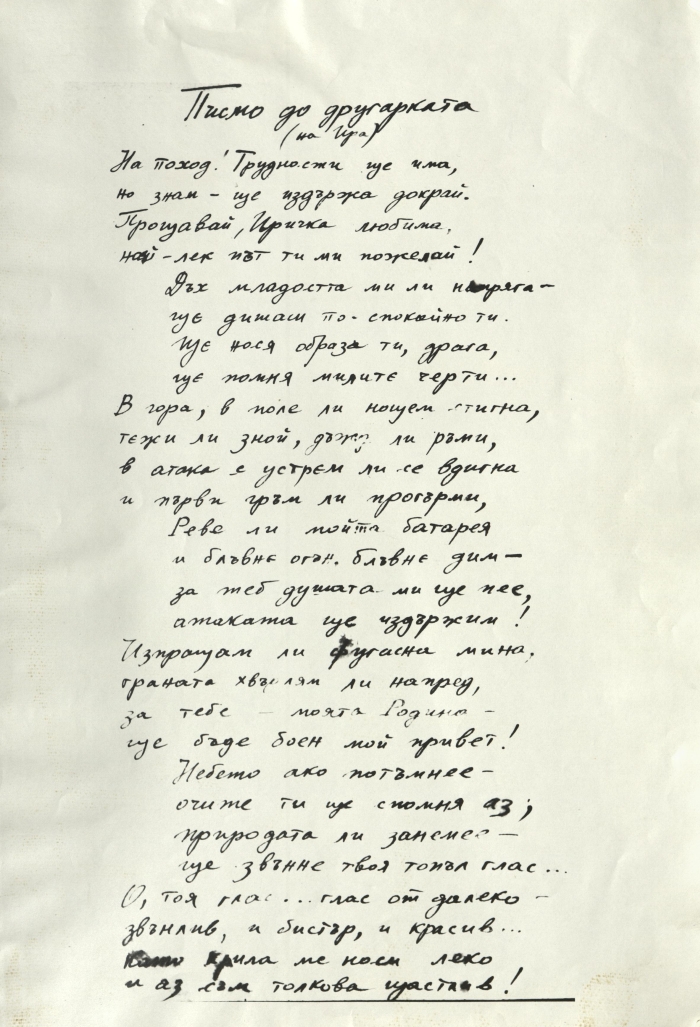 Писмо до другарката
(на Ира)
На поход! Трудности ще има,
но знам – ще издържа докрай.
Прощавай, Иричка любима,
най-лек път ти ми пожелай!
Дъх младостта ми ли напряга –
ще дишаш по-спокойно ти.
Ще нося образа ти, драга,
ще помня милите черти...
В гора, в поле ли нощем стигна,
тежи ли зной, дъжд ли ръми,
в атака с устрем ли се вдигна
и първи гръм ли прогърми,
Реве ли мойта батарея
и блъвне огън, блъвне дим –
за теб душата ми ще пее,
атаката ще издържим!
Изпращам ли фугасна мина,
граната хвърлям ли напред,
за тебе – моята Родина –
ще бъде боен мой привет!
Небето ако потъмнее –
очите ти ще спомня аз;
природата ли занемее –
ще звънне твоя топъл глас...
О, тоя глас... глас от далеко –
звънлив, и бистър, и красив...
Като крила ме носи леко
и аз съм толкова щастлив!